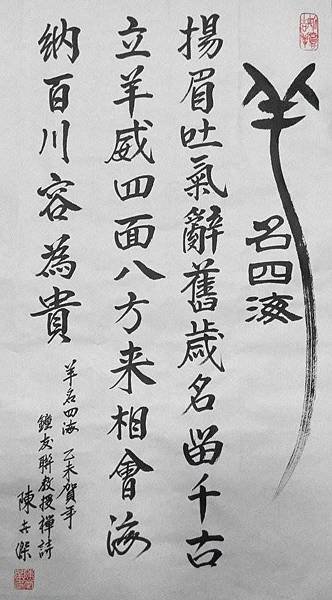 羊名四海
揚眉吐氣辭舊歲名留千古
立羊威四面八方来相會海
納百川容為貴
羊名四海 乙未賀年
鍾友聯教授禪詩
陳世傑